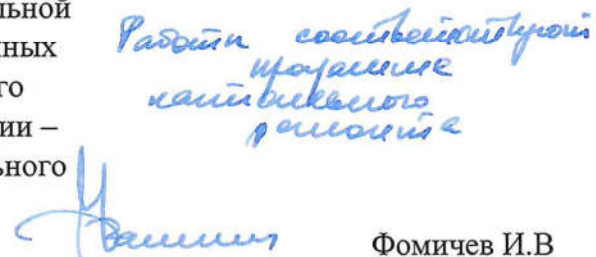 льной
нных
го
ии –
ьного
Работы соответствуют
программе
капитального
ремонта
Фомичев И.В